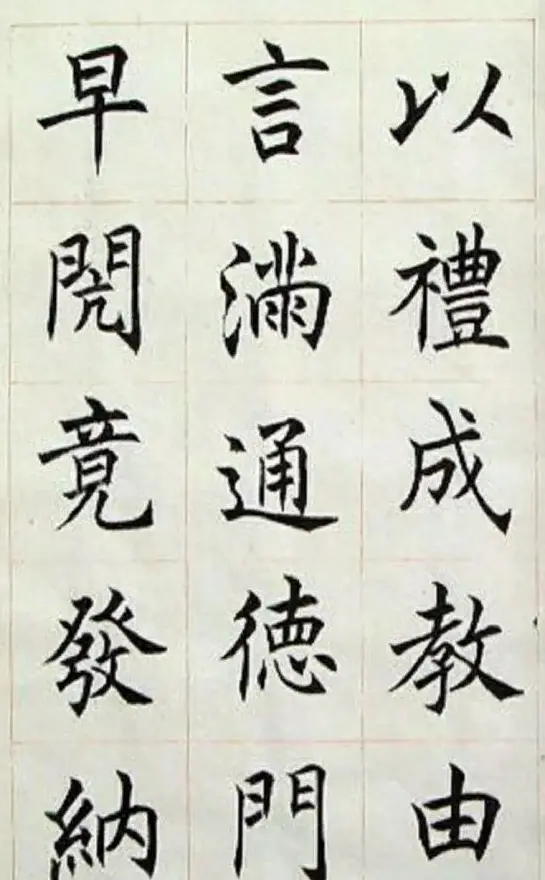 以禮成教由
言滿通德門
早竟發納